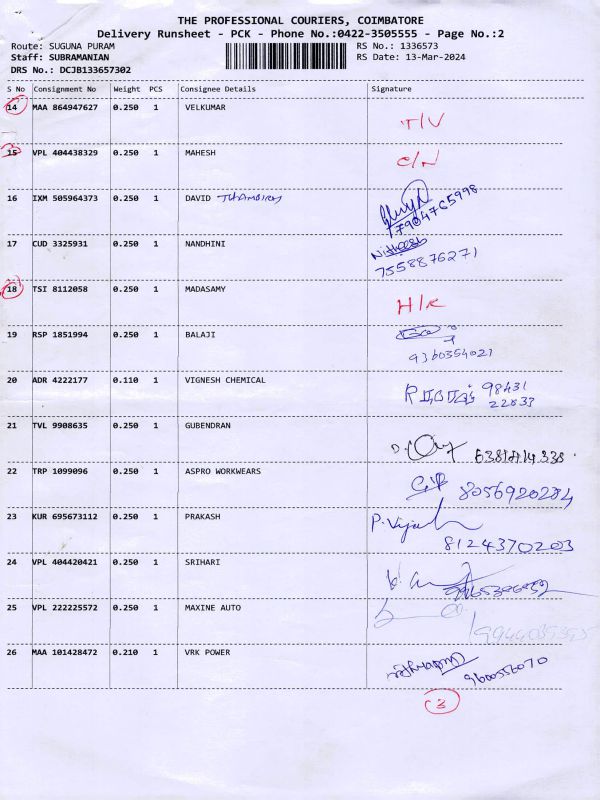 THE PROFESSIONAL COURIERS, COIMBATORE
Delivery Runsheet - PCK - Phone No.:0422-3505555 - Page No.:2
Route: SUGUNA PURAM RS No.: 1336573
Staff: SUBRAMANIAN RS Date: 13-Mar-2024
DRS No.: DCJB133657302
S No Consignment No Weight PCS Consignee Details Signature
14 MAA 864947627 0.250 1 VELKUMAR T/V
15 VPL 404438329 0.250 1 MAHESH C/N
16 IXM 505964373 0.250 1 DAVID 7904765998
17 CUD 3325931 0.250 1 NANDHINI Nitheesh
7558876271
18 TSI 8112058 0.250 1 MADASAMY H/R
19 RSP 1851994 0.250 1 BALAJI
9360354021
20 ADR 4222177 0.110 1 VIGNESH CHEMICAL 98431
22833
21 TVL 9908635 0.250 1 GUBENDRAN
22 TRP 1099096 0.250 1 ASPRO WORKWEARS 8056920284
23 KUR 695673112 0.250 1 PRAKASH P. Vijay
8124370203
24 VPL 404420421 0.250 1 SRIHARI
25 VPL 222225572 0.250 1 MAXINE AUTO
26 MAA 101428472 0.210 1 VRK POWER 9600556070
3